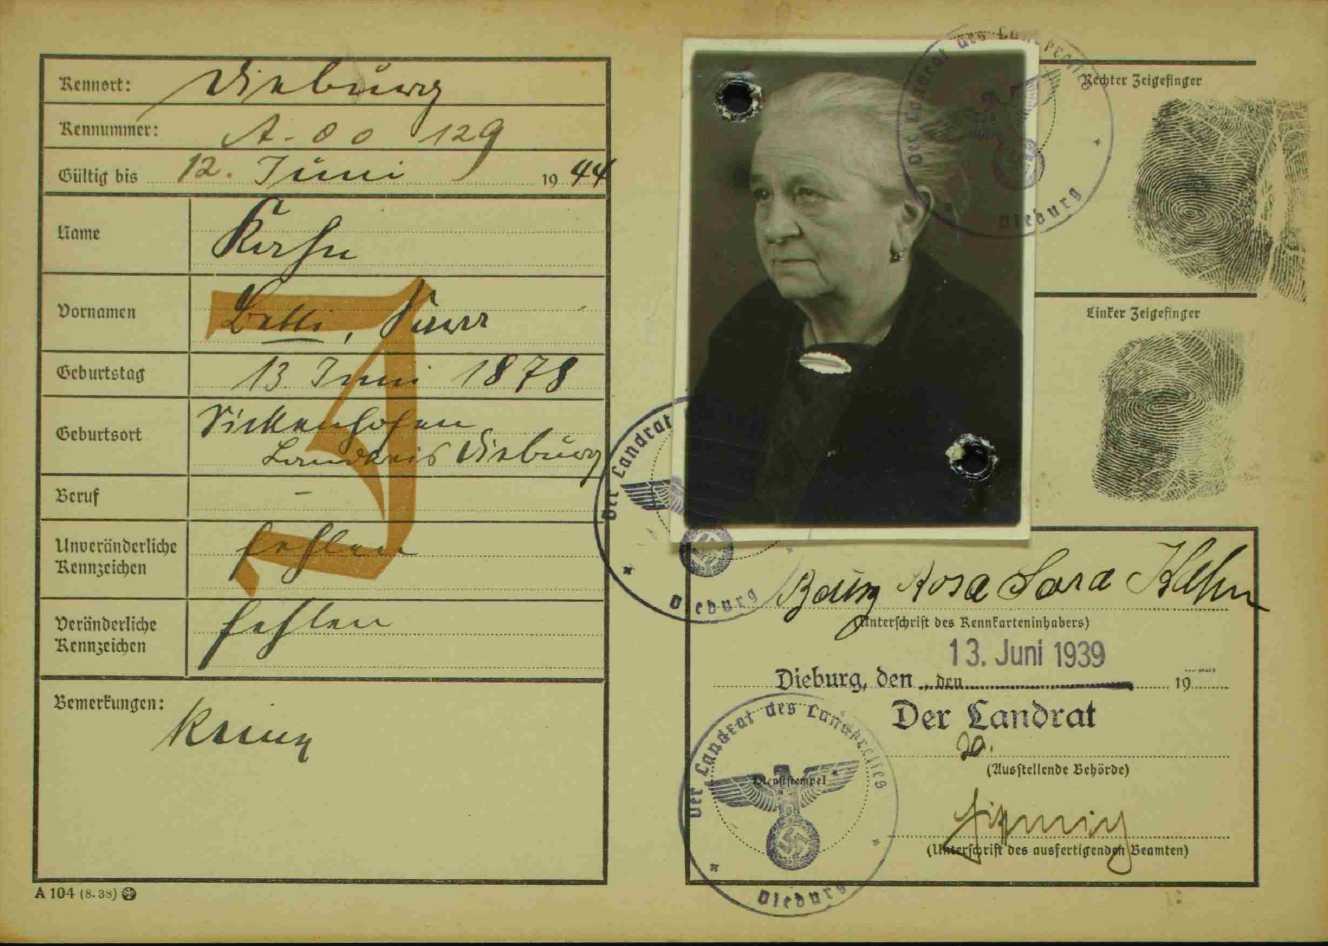 Kennort: Dieburg
Kennummer: A=00 129
Gültig bis 12. Juni 1944
Name Kahn
Vornamen Betti, Sara
Geburtstag 13 Juni 1878
Geburtsort Sickenhofen
Landkreis Dieburg
Beruf –
Unveränderliche Kennzeichen fehlen
Veränderliche Kennzeichen fehlen
Bemerkungen: Keine
A 104 (8. 38)
J
Der Landrat des Landkreises
Dieburg
Rechter Zeigefinger
Linker Zeigefinger
Der Landrat
Dieburg
Rosa Sara Kahn
(Unterschrift des Kennkarteninhabers)
13. Juni 1939
Dieburg, den den 19
Der Landrat
(Ausstellende Behörde)
Der Landrat des Landkreises
Dienststempel
Dieburg
(Unterschrift des ausfertigenden Beamten)